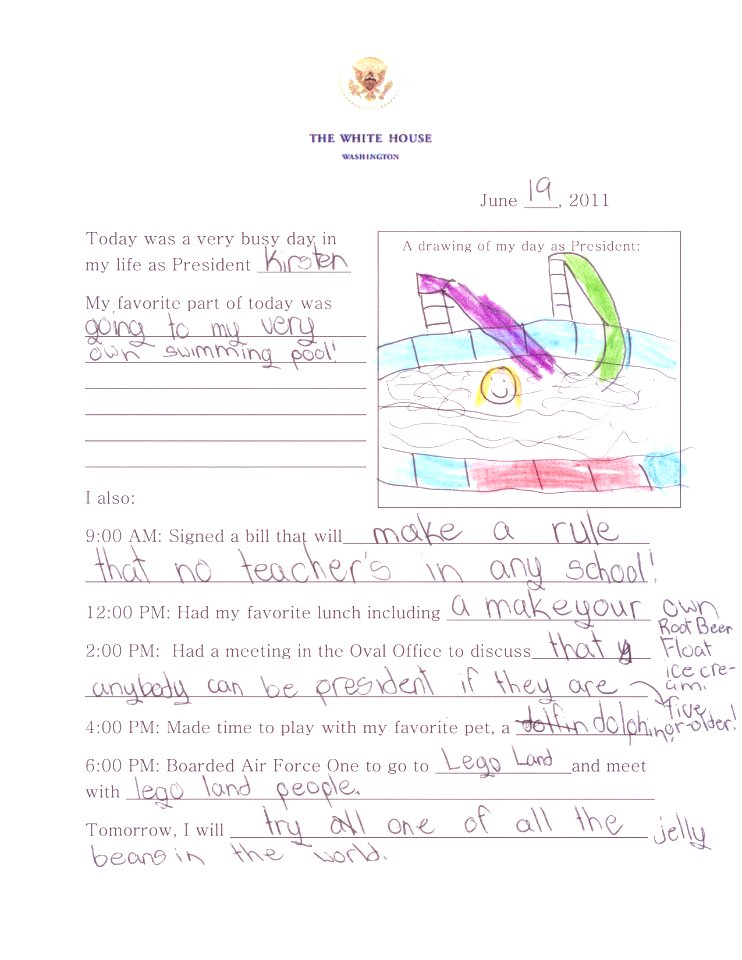 THE WHITE HOUSE
WASHINGTON
June 19, 2011
Today was a very busy day in
my life as President Kirsten
My favorite part of today was
going to my very
own swimming pool!
A drawing of my day as President:
I also:
9:00 AM: Signed a bill that will make a rule
that no teacher's in any school!
12:00 PM: Had my favorite lunch including a makeyour own
Root Beer
Float
ice cre-
am.
2:00 PM: Had a meeting in the Oval Office to discuss that
anybody can be president if they are
five
or-older!
4:00 PM: Made time to play with my favorite pet, a dolfin dolphin
6:00 PM: Boarded Air Force One to go to Lego Land and meet
with lego land people.
Tomorrow, I will try all one of all the jelly
beans in the world.